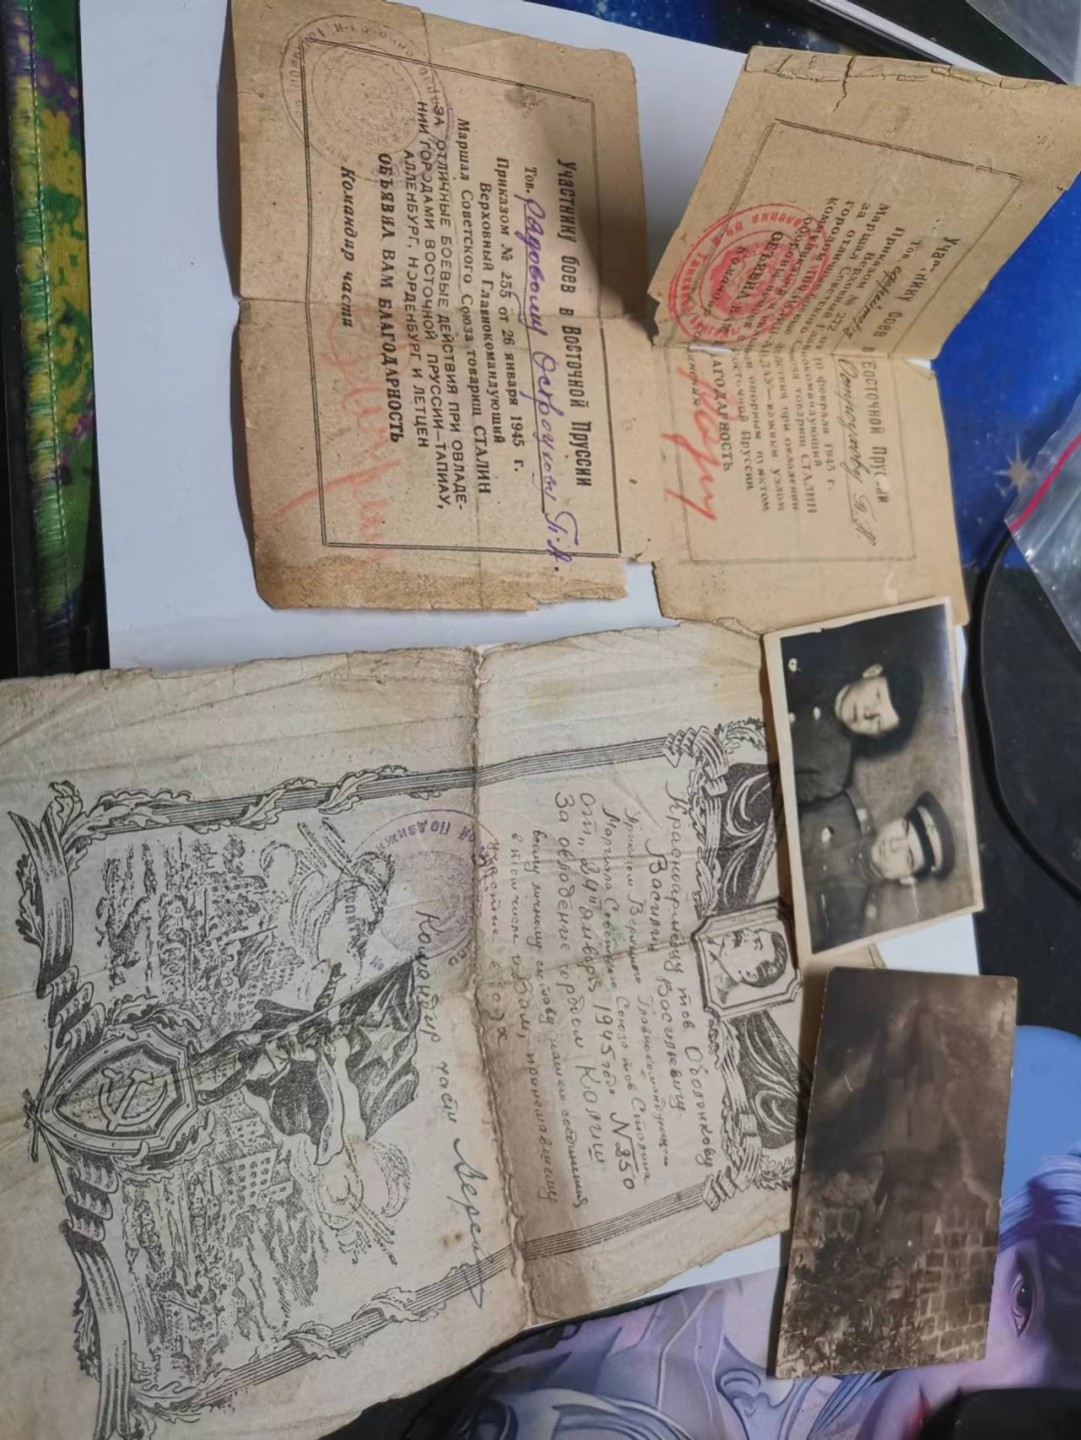 Участнику боев в Восточной Пруссии
Тов. рядовому Остроухову П.А.
Приказом № 255 от 26 января 1945 г.
Верховный Главнокомандующий
Маршал Советского Союза товарищ СТАЛИН
ЗА ОТЛИЧНЫЕ БОЕВЫЕ ДЕЙСТВИЯ ПРИ ОВЛАДЕ-
НИИ ГОРОДАМИ ВОСТОЧНОЙ ПРУССИИ—ТАПИАУ,
АЛЛЕНБУРГ, НОРДЕНБУРГ И ЛЕТЦЕН
ОБЪЯВИЛ ВАМ БЛАГОДАРНОСТЬ
Командир части
Участнику боев в Восточной Пруссии
Тов. Остроухову П.А.
Приказом № 272 от 10 февраля 1945 г.
Верховный Главнокомандующий
Маршал Советского Союза товарищ СТАЛИН
за отличные боевые действия при овладении
важным узлом
опорным пунктом
Восточной Пруссии
ОБЪЯВИЛ БЛАГОДАРНОСТЬ
Красноармейцу тов Оболонкову
Василию Васильевичу
Приказом Верховного Главнокомандующего
Маршала Советского Союза тов Сталина
от „24" января 1945 года № 250
За овладение городом Калиш
всему личному составу нашего соединения
в том числе и Вам, принимавшему
участие в боях
Командир части